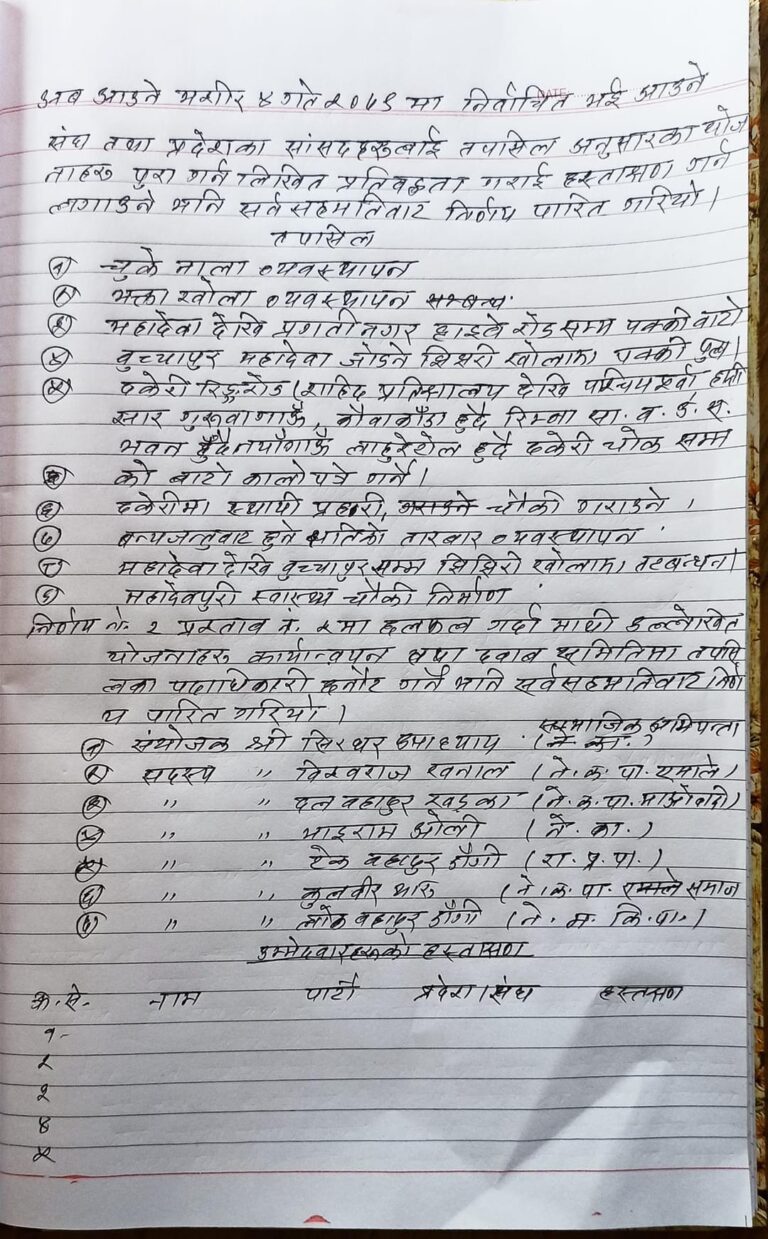 अब आउने मंसीर ४ गते २०७९ मा निर्वाचित भई आउने
संघ तथा प्रदेशका सांसदहरुलाई तपासिल अनुसारका योज
नाहरु पुरा गर्न लिखित प्रतिवद्धता गराई हस्ताक्षण गर्न
लगाउने भनि सर्वसहमतिवाट निर्णय पारित गरियो।
तपासिल
(१) चुके नाला व्यवस्थापन
(२) भक्ता खोला व्यवस्थापन सम्बन्ध.
(३) महादेवा देखि प्रगतीनगर हाइवे रोड सम्म पक्की वाटो
(४) वुच्चापुर महादेवा जोडने झिझरी खोलामा पक्की पुल।
(५) ढकेरी रिङ्गरोड (शहिद प्रतिक्षालय देखि पश्चिम
सार गुरुवागाउँ, हुदै रिम्ना सा. व. उ. स.
भवन हुँदै नयाँगाउँ लाहुरेटोल हुदै ढकेरी चोक सम्म
को बाटो कालोपत्रे गर्ने।
(६) ढकेरीमा स्थायी प्रहरी चौकी गराउने ।
(७) बन्यजन्तुवाट हुने क्षतिको तारबार व्यवस्थापन
(८) महादेवा देखि वुच्चापुर सम्म झिझिरी खोलामा तटबन्धन।
(९) महादेवपुरी स्वास्थ्य चौकी निर्माण
निर्णय नं. २ प्रस्ताव नं. २ मा छलफल गर्दा माथी उल्लेखित
योजनाहरु कार्यान्वयन तथा दवाब समितिमा तपसि
लका पदाधिकारी छनौट गर्ने भनि सर्वसहमतिवाट निर्ण
य पारित गरियो।
सामाजिक अभियन्ता
(१) संयोजक श्री उपाध्याय (ने. का.)
(२) सदस्य ,, विश्वराज खनाल (ने. क. पा. एमाले)
(३) ,, ,, दल वहादुर खड्का (ने. क. पा. माओवादी)
(४) ,, ,, भाइराम ओली (ने. का.)
(५) ,, ,, टेक वहादुर डाँगी (रा. प्र. पा.)
(६) ,, ,, कुलवीर थारु (ने. क. पा. एमाले समाज
(७) ,, ,, लोक वहादुर डाँगी (ने. म. कि. पा.)
उम्मेदवारहरुको हस्ताक्षण
क्र. सं. नाम पार्टी प्रदेश/संघ हस्ताक्षण
१-
२
३
४
५